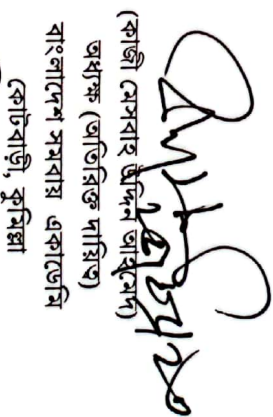 (কাজী মেসবাহ উদ্দিন আহমেদ)
অধ্যক্ষ (অতিরিক্ত দায়িত্ব)
বাংলাদেশ সমবায় একাডেমি
কোটবাড়ী, কুমিল্লা